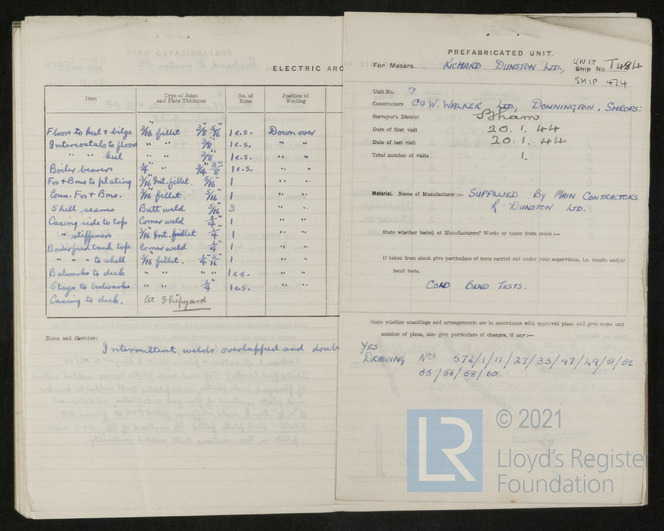 ELECTRIC ARC
Item
Type of Joint and Plate Thickness
No. of Runs
Position of Welding
Floors to keel & bilge 3/16 fillet 3/8 5/16 1 e.s. Downover
Intercostals to floors " " 3/8 1 e.s. " "
" " keel " " 3/8 1 e.s. " "
Boiler bearers 1/4" " 1 e.s. " "
Frs & Bms to plating 3/16 Int. fillet. 5/16 1 " "
Conn. Frs & Bms. 3/16 fillet 5/16 1 " "
Shell seams Butt weld 5/16 3 " "
Casing side to top Corner weld 1/4 1 " "
" stiffeners 3/16 Int. fillet 1/4 1 " "
tank top Corner weld 1/4 1 " "
" " to shell 3/16 fillet. 1 " "
Bulwarks to deck " " 1 e.s. " "
Stays to bulwarks " " 1/4 1 e.s. " "
Casing to deck. At Shipyard
Notes and Sketches:
Intermittent welds overlapped and doub
PREFABRICATED UNIT.
For Messrs. RICHARD DUNSTON LTD, UNIT Ship No. T484
SHIP 474
Unit No. 7
Constructors C & W. WALKER LTD, DONNINGTON, SHROPS:
Surveyor's District Bham
Date of first visit 20. 1. 44
Date of last visit 20. 1. 44
Total number of visits 1
Material. Name of Manufacturer:— SUPPLIED BY MAIN CONTRACTORS
R DUNSTON LTD.
State whether tested at Manufacturers' Works or taken from stock:—
If taken from stock give particulars of tests carried out under your supervision. i.e. tensile and/or
bend tests.
COLD BEND TESTS.
State whether scantlings and arrangements are in accordance with approved plans and give name and
number of plans, also give particulars of changes, if any:—
YES.
DRAWING Nos 572/1/11/27/33/47/49/51/52
55/56/58/60.
© 2021
LR
Lloyd's Register
Foundation